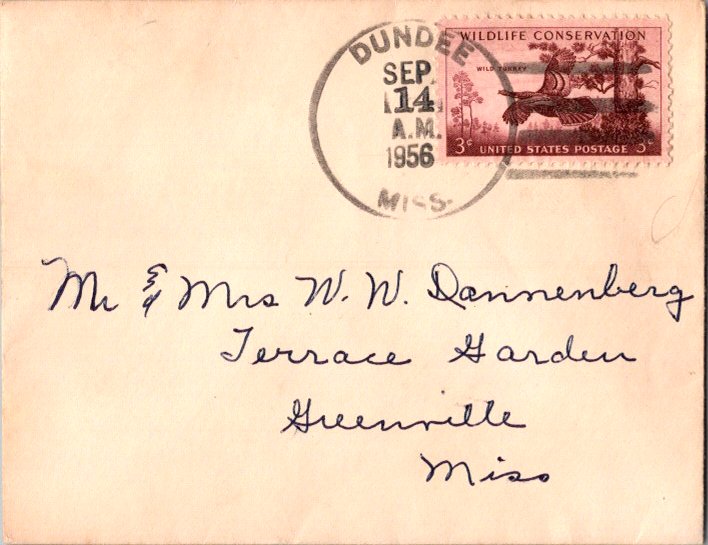 DUNDEE
SEP
14
A.M.
1956
MISS.
WILDLIFE CONSERVATION
WILD TURKEY
3¢ UNITED STATES POSTAGE 3¢
Mr & Mrs W. W. Dannenberg
Terrace Garden
Greenville
Miss